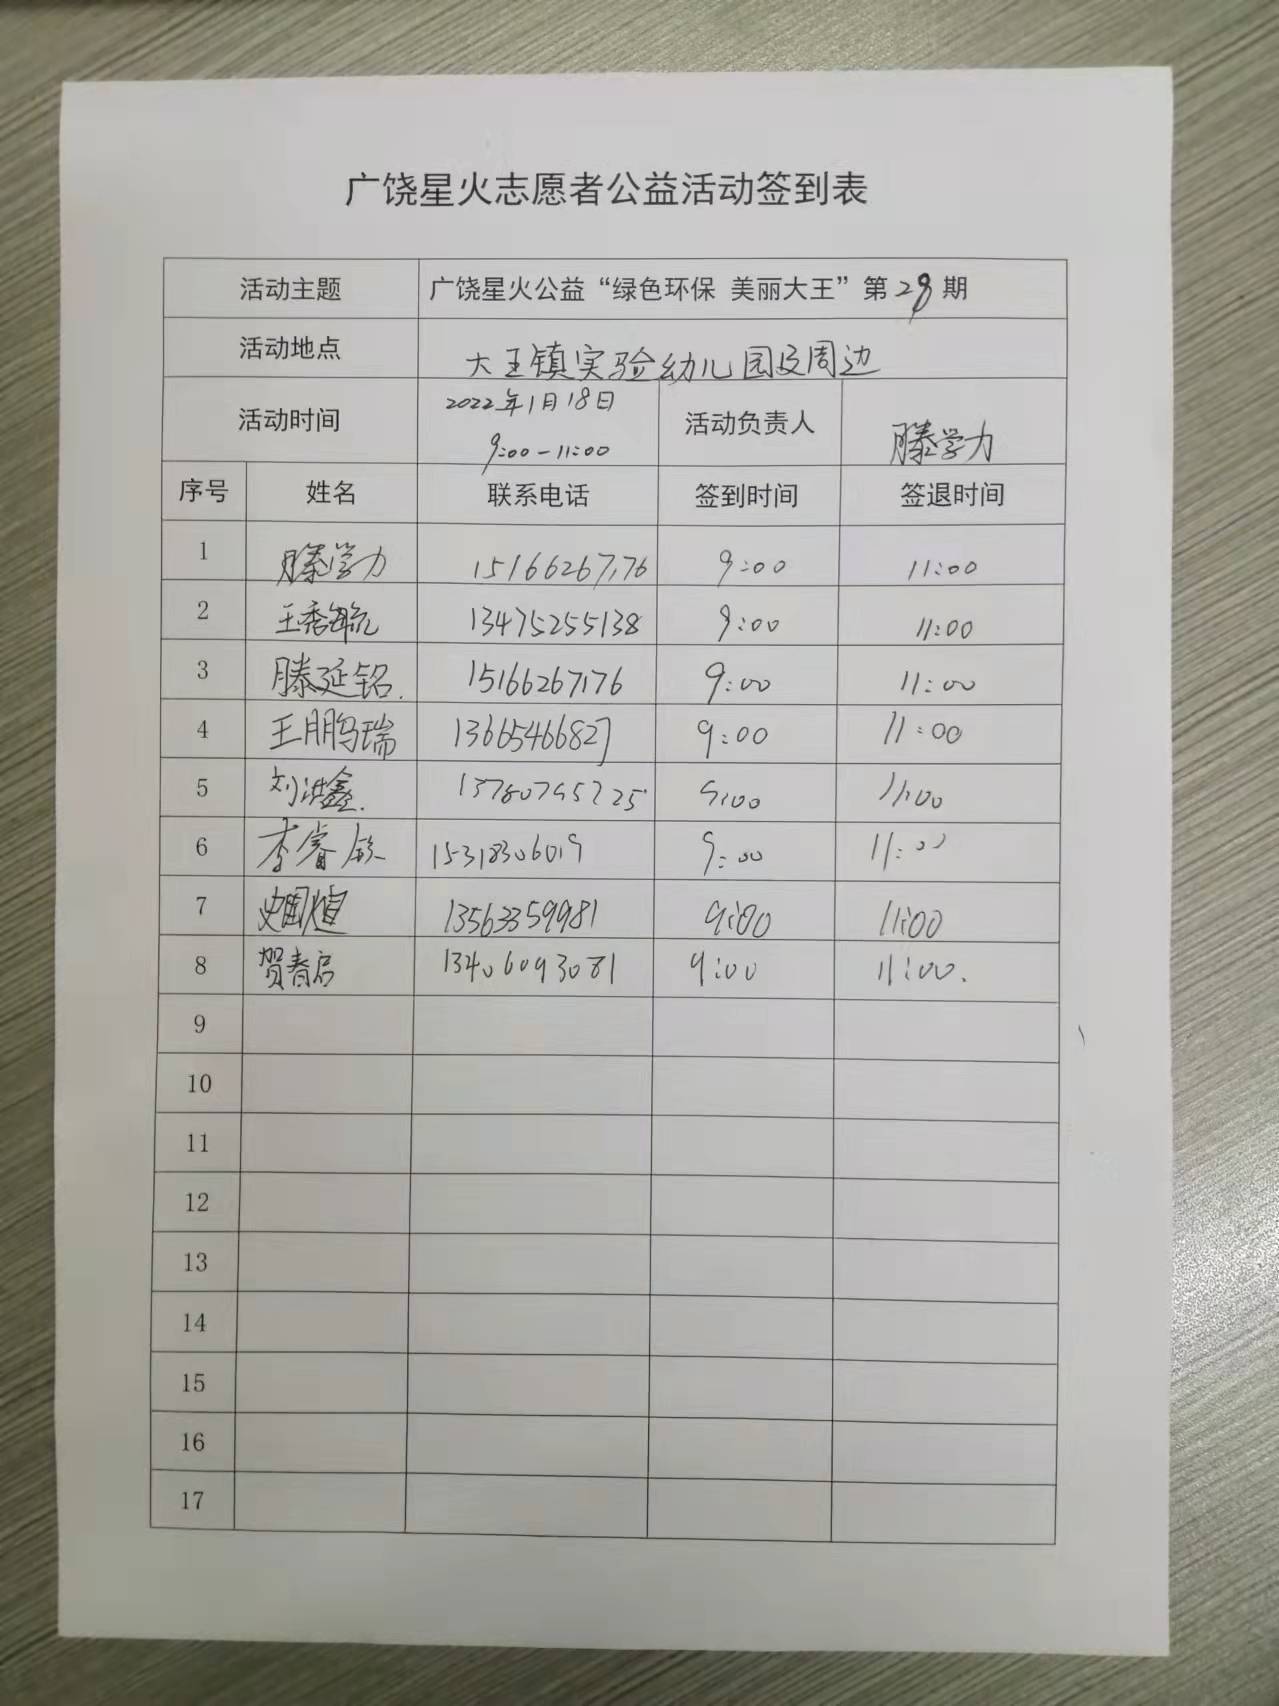 广饶星火志愿者公益活动签到表
活动主题 广饶星火公益“绿色环保 美丽大王”第 期
活动地点 大王镇实验幼儿园及周边
活动时间 2022年1月18日 9:00-11:00 活动负责人 滕学力
序号 姓名 联系电话 签到时间 签退时间
1 滕学力 15166267176 9:00 11:00
2 王秀 13475255138 9:00 11:00
3 滕延铭. 15166267176 9:00 11:00
4 王鹏瑞 13665466827 9:00 11:00
5 刘洪鑫. 9:00 11:00
6 李睿 15318306019 9:00 11:00
7 史国 13563359981 9:00 11:00
8 贺春启 13406093081 9:00 11:00.
9
10
11
12
13
14
15
16
17